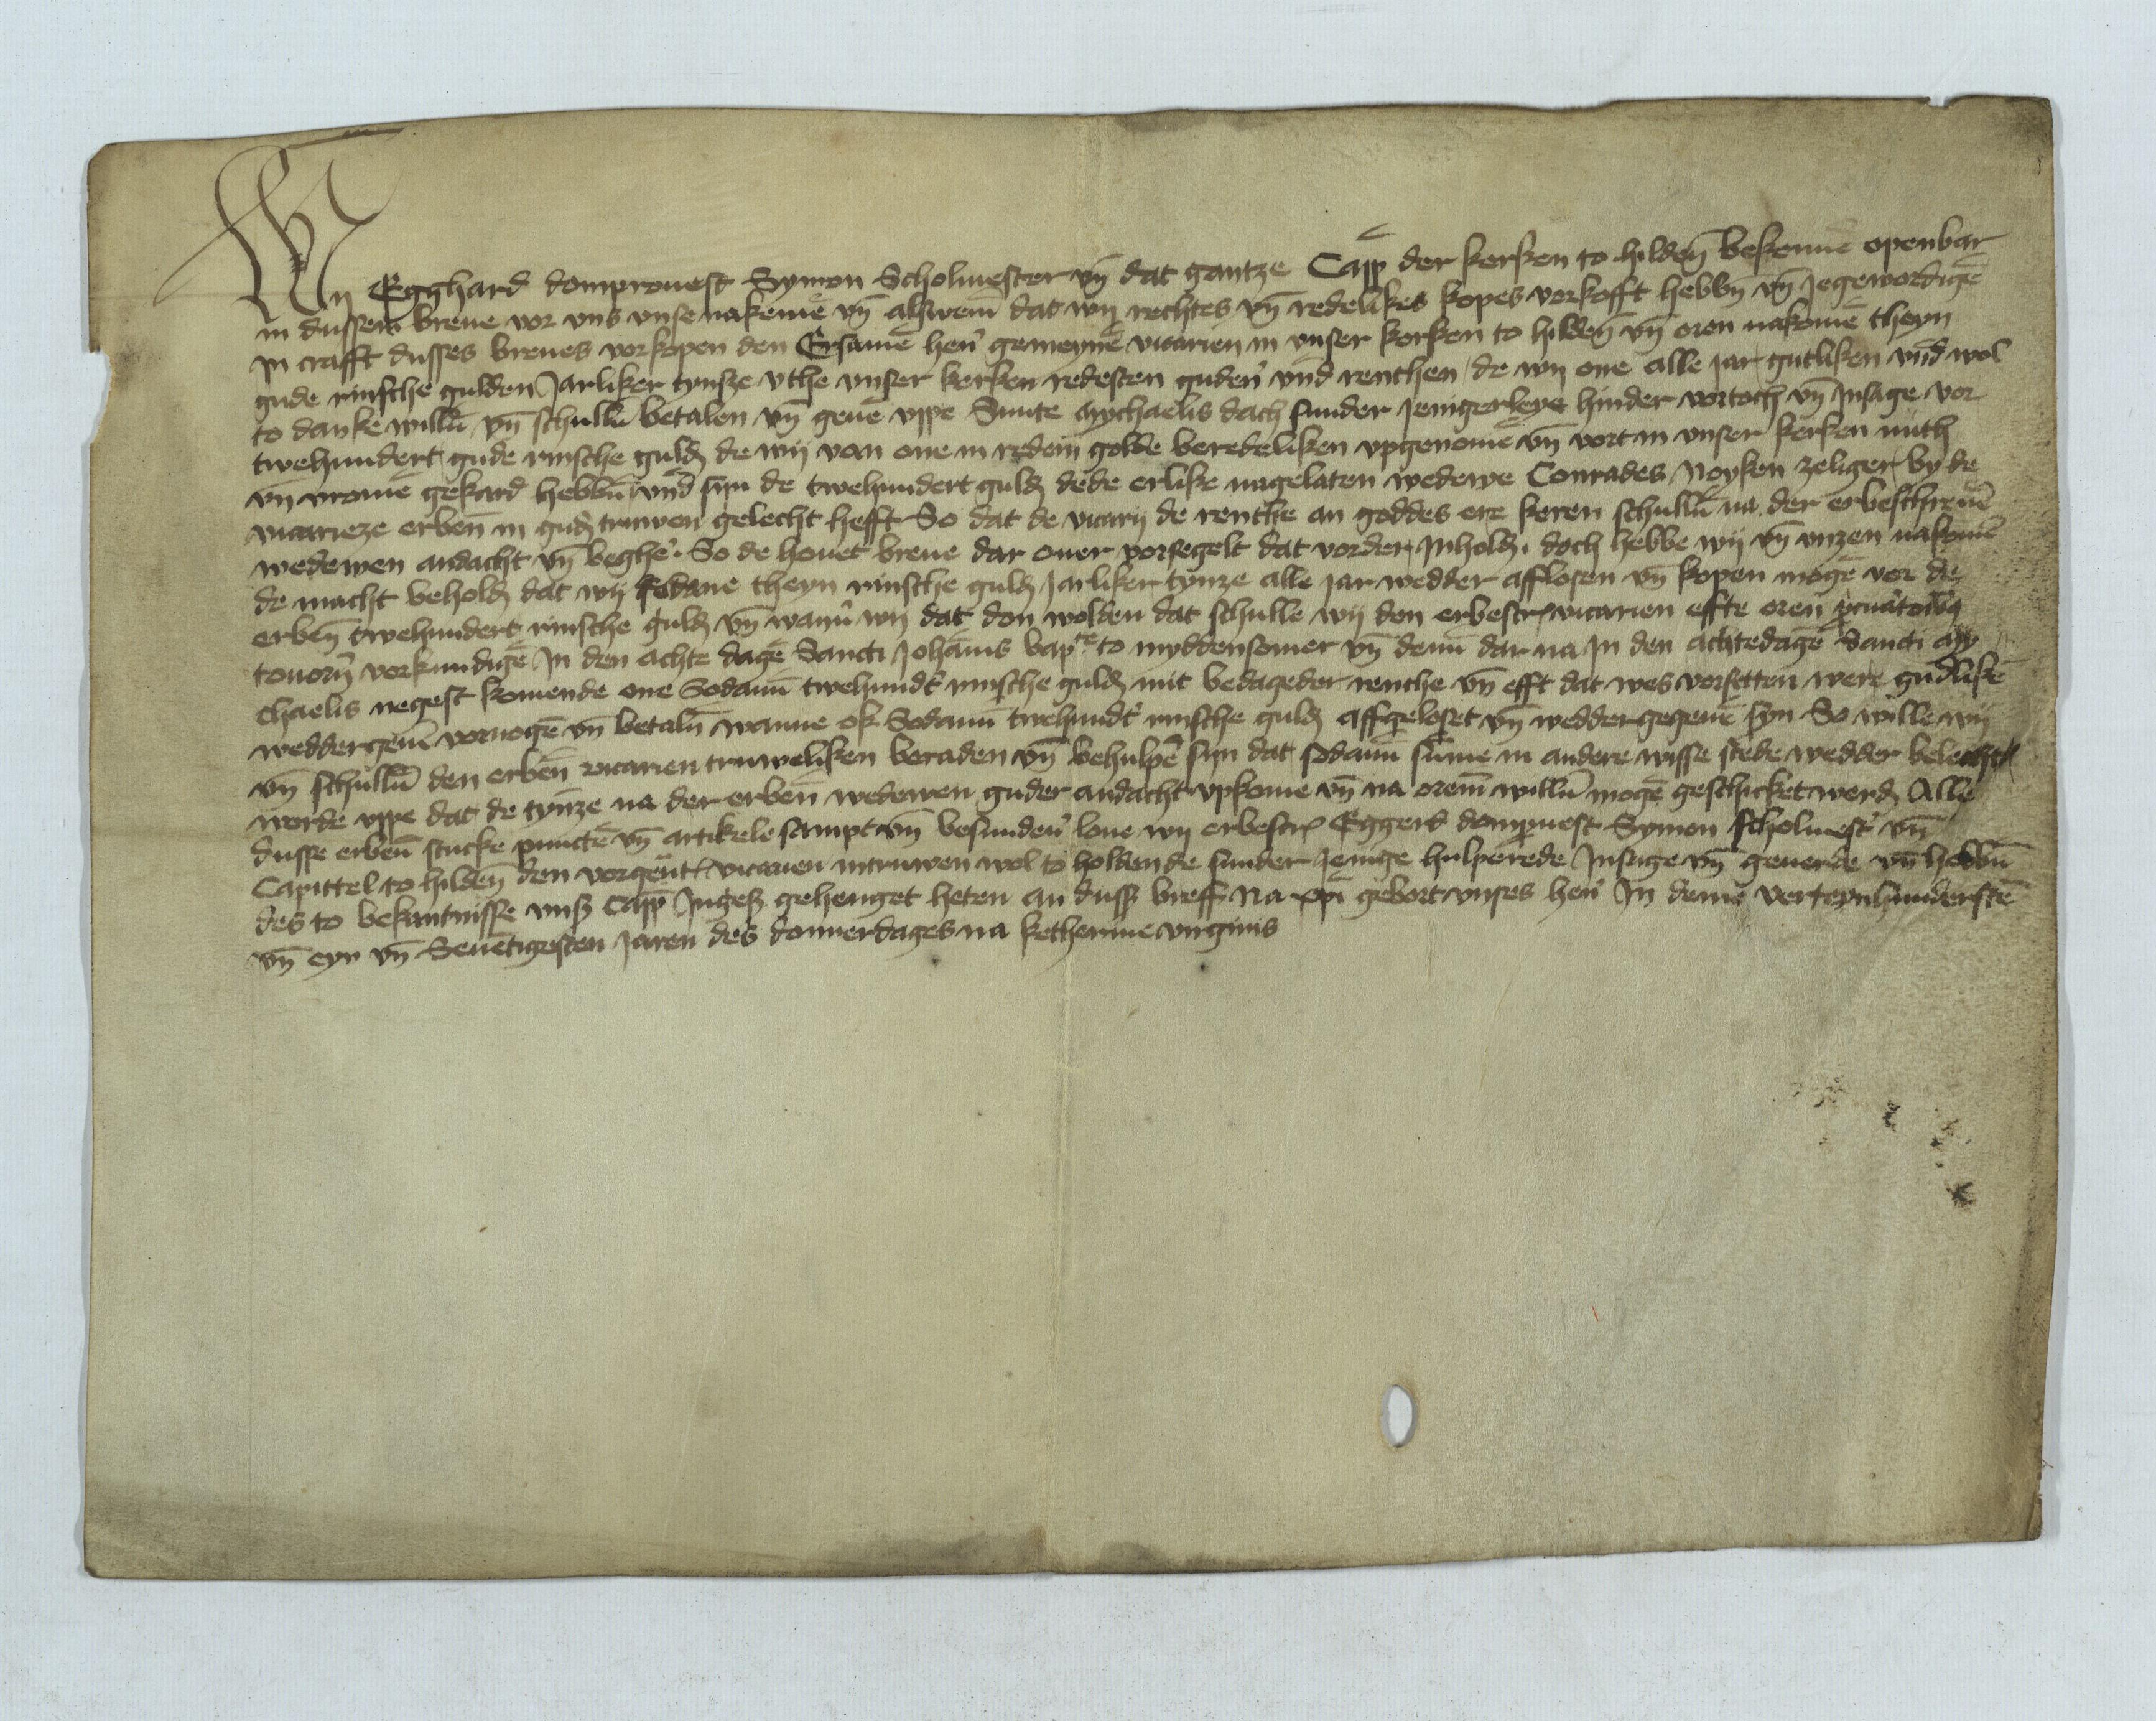 Wy Egghard domprouest Symon Scholmester vn̄ dat gantze Capp̄ der kerken to hilden̄ bekenne openbar
in dussem breue vor vns vnse nakomē vn̄ alsweme dat wy rechtes vn̄ redelikes kopes vorkofft hebbn̄ vn̄ Jegewordigē
In crafft dusses breues vorkopen den Ersamē hern̄ gemeynē vicarien in vnser kerken to hilden̄ vn̄ oren nakomē theyn
gude rinsche gulden Jarliker tynsze vthe vnser kerken redesten guderꝰ vnd renthen de wy one alle jar gutliken vnd wol
to danke willn̄ vn̄ schulln̄ betalen vn̄ geuē vppe Sunte Mychaelis dach sunder jenigerleye hinder vortoch vn̄ Insage vor
twehundert gude rinsche guldn̄ de wij van one in redem golde beredeliken vpgenomē vn̄ vort in vnser kerken nuth
vn̄ vromē gekard hebbn̄ vnd syn de twehundert guldn̄ dede erlike nagelaten wedewe Conrades Noyken zeliger by de
vicarieze erbenn̄ in gudn̄ truwen gelecht hefft So dat de vicarij de renthe an goddes ere keren schulln̄ na der erbeschreuē
wedewen andacht vn̄ begheꝰ. So de houet breue dar ouer vorsegelt dat vorder Inholdn̄. doch hebbe wij vn̄ vnzen nakomē
de macht beholdn̄ dat wij sodane theyn rinsche guldn̄ Jarliker tynze alle jar wedder afflosen vn̄ kopen mogē vor de
erbenn̄ twehundert rinsche guldn̄ vn̄ wanꝰ wij dat don wolden dat schulle wij den erbescrꝭ vicarien effte oren procuratoribꝫ
touornꝰ vorkundigē In den achte dagē Sancti Johānis bapte to myddensomer vn̄ denn̄ dar na In den achtedagē Sancti My
chaelis negest komende one Sodann̄ twehundꝰt rinsche guldn̄ mit bedageder renthe vn̄ efft dat wes vorsetten were gudlikē
weddergeuē vornogē vn̄ betaln̄ wanne ok Sodann̄ twehundꝰt rinsche guldn̄ affgeloset vn̄ weddergegeuē syn So wille wij
vn̄ schulln̄ den erbenn̄ vicarien truweliken beraden vn̄ behulpē syn dat sodann̄ sūme in andere wisse stede wedder belecht
werde vppe dat de tynze na der erbenn̄ wedewen guder andacht vpkome vn̄ na orem̄ willn̄ mogē geschicket werdn̄ Alle
dusse erbenn̄ stucke punctē vn̄ artikele samptvn̄ besundernꝰ loue wy erbescrꝭ Eggerd domprouest Symon Scholmestꝰ vn̄
Capittel to hilden̄ den vorgēnt vicarien intruwen wol to holdende sunder Jenige hulperede Insage vn̄ geuerde vn̄ hebbn̄
des to bekantnisse vnß Capp̄ Ingeß gehenget heten an dussn̄ breff Na xpi gebort vnses hernꝰ In deme verteynhunderstē
vn̄ eyn vn̄ Seuētigesten jaren des donnerdages na ketherine virginis